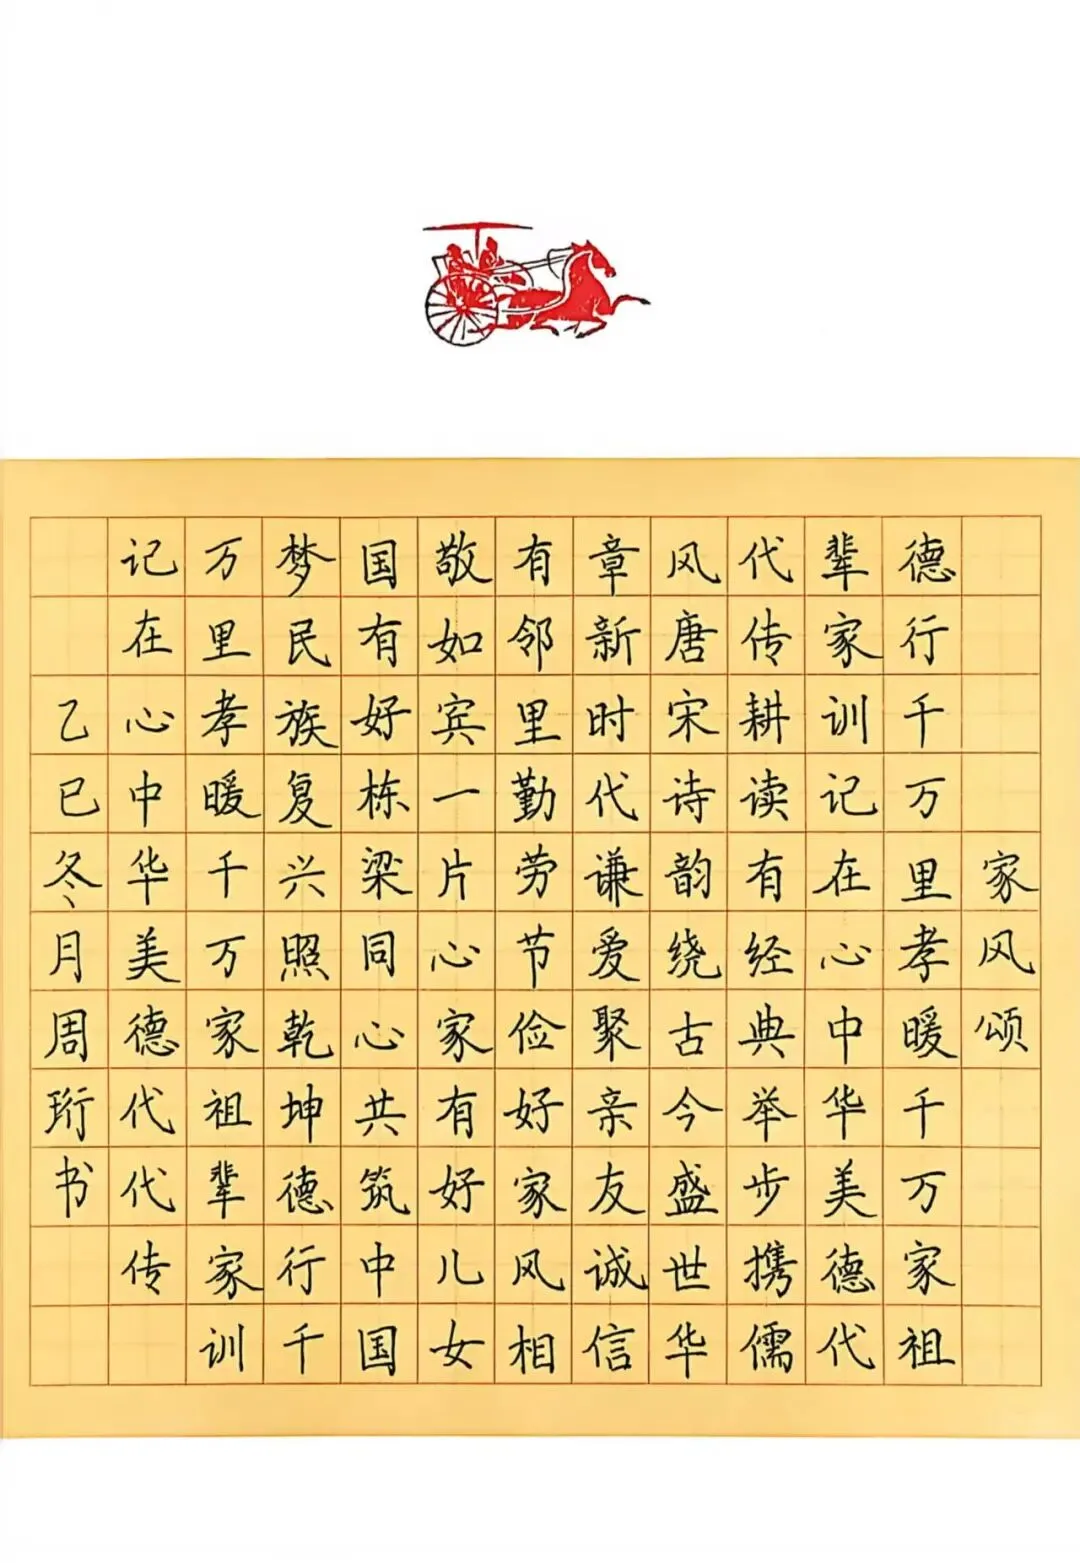 家风颂
德行千万里孝暖千万家祖
辈家训记在心中华美德代
代传耕读有经典举步携儒
风唐宋诗韵绕古今盛世华
章新时代谦爱聚亲友诚信
有邻里勤劳节俭好家风相
敬如宾一片心家有好儿女
国有好栋梁同心共筑中国
梦民族复兴照乾坤德行千
万里孝暖千万家祖辈家训
记在心中华美德代代传
乙巳冬月周珩书